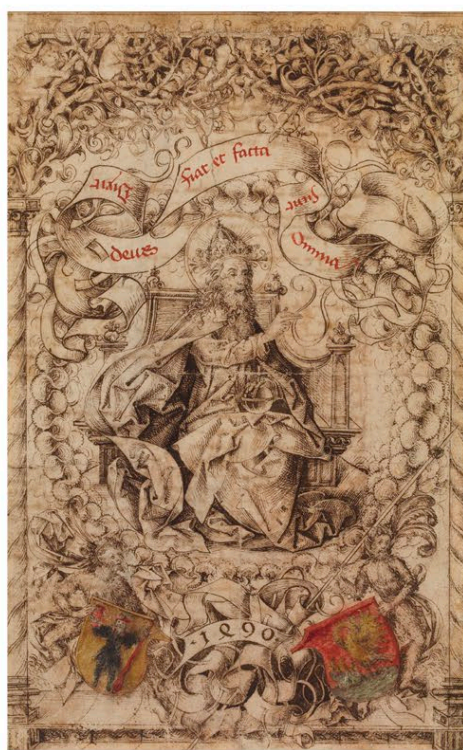 Dixit
deus
Fiat et facta
sunt
Omnia
·1490·